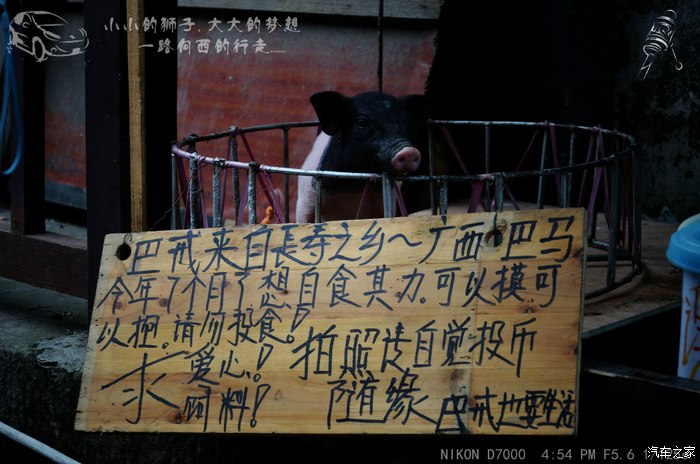 小小的狮子,大大的梦想
一路向西的行走......
巴戒来自長寿之乡~广西巴马
今年7个月了想自食其力.可以摸可
以抱。请勿投食!
求爱心!饲料!
拍照请自觉投币
随缘
巴戒也要生活
NIKON D7000 4:54 PM F5.6
汽车之家